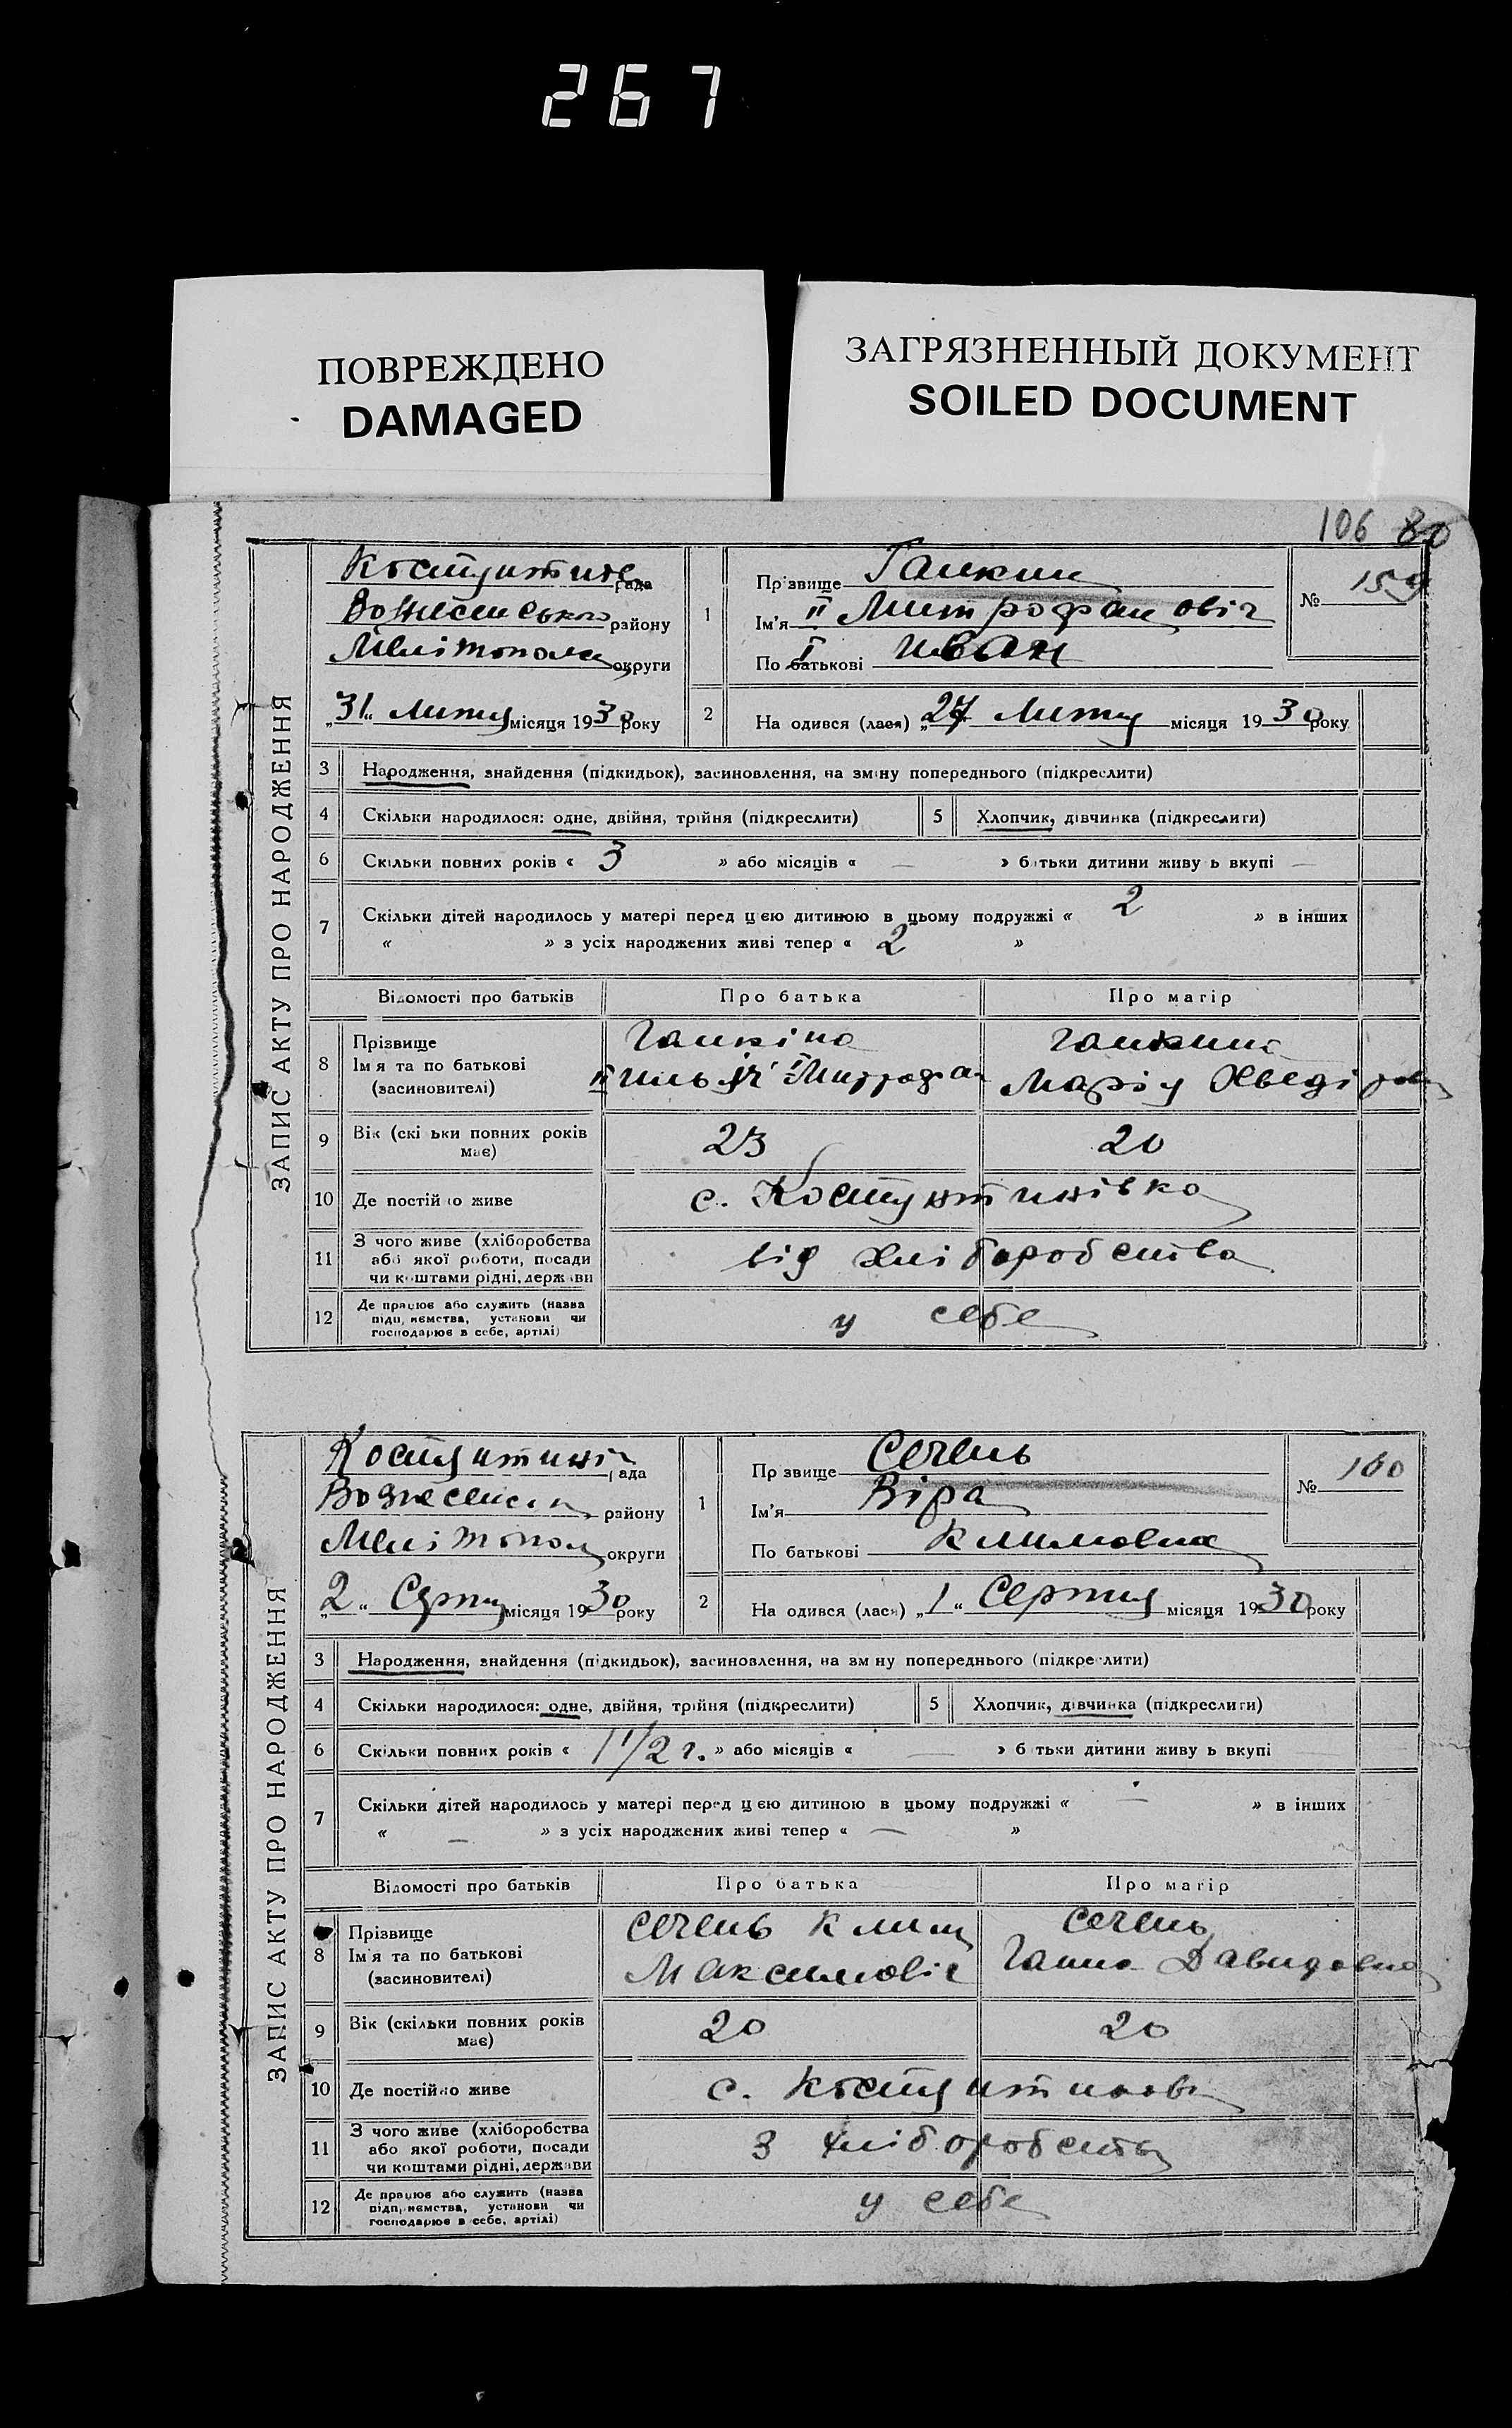 267
ПОВРЕЖДЕНО
DAMAGED
ЗАГРЯЗНЕННЫЙ ДОКУМЕНТ
SOILED DOCUMENT
106 80
ЗАПИС АКТУ ПРО НАРОДЖЕННЯ
рада
району
округи
„31“ місяця 1930 року
1
Пр звище Ганкин
Ім'я II Митрофанович
По батькові I Иван
№ 159
2
На одився (лася) „27 місяця 1930 року
3 Народження, знайдення (підкидьок), засиновлення, на зміну попереднього (підкреслити)
4 Скільки народилося: одне, двійня, трійня (підкреслити) 5 Хлопчик, дівчинка (підкреслити)
6 Скільки повних років « 3 » або місяців « — » батьки дитини живу ь вкупі —
7 Скільки дітей народилось у матері перед цією дитиною в цьому подружжі « 2 » в інших
« » з усіх народжених живі тепер « 2 »
Відомості про батьків Про батька Про матір
8 Прізвище Ганкіна Ганкина
Ім я та по батькові Марія
(засиновителі)
9 Вік (скі ьки повних років 23 20
має)
10 Де постійно живе с. Костянтинівка
11 З чого живе (хліборобства від хліборобства
або якої роботи, посади
чи коштами рідні, держави
12 Де працює або служить (назва у себе
підприємства, установи чи
господарює в себе, артілі)
ЗАПИС АКТУ ПРО НАРОДЖЕННЯ
Костянтині рада
району
округи
„2“ місяця 1930 року
1
Пр звище Сечень
Ім'я Віра
По батькові Климовна
№ 160
2
На одився (лася) „1“ Серпня місяця 1930 року
3 Народження, знайдення (підкидьок), засиновлення, на зм ну попереднього (підкреслити)
4 Скільки народилося: одне, двійня, трійня (підкреслити) 5 Хлопчик, дівчинка (підкреслити)
6 Скільки повних років « 1 1/2 г. » або місяців « — » б тьки дитини живу ь вкупі
7 Скільки дітей народилось у матері перед цією дитиною в цьому подружжі « — » в інших
« — » з усіх народжених живі тепер « — »
Відомості про батьків Про батька Про матір
8 Прізвище Сечень Клим Сечень
Ім'я та по батькові Максимовіч Ганна Давидовна
(засиновителі)
9 Вік (скільки повних років 20 20
має)
10 Де постійно живе с.
11 З чого живе (хліборобства З хліборобства
або якої роботи, посади
чи коштами рідні, держави
12 Де працює або служить (назва у себе
підприємства, установи чи
господарює в себе, артілі)